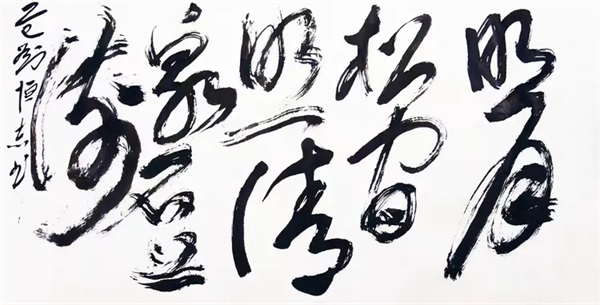 明月
松间
照清
泉石上
流
恒志书